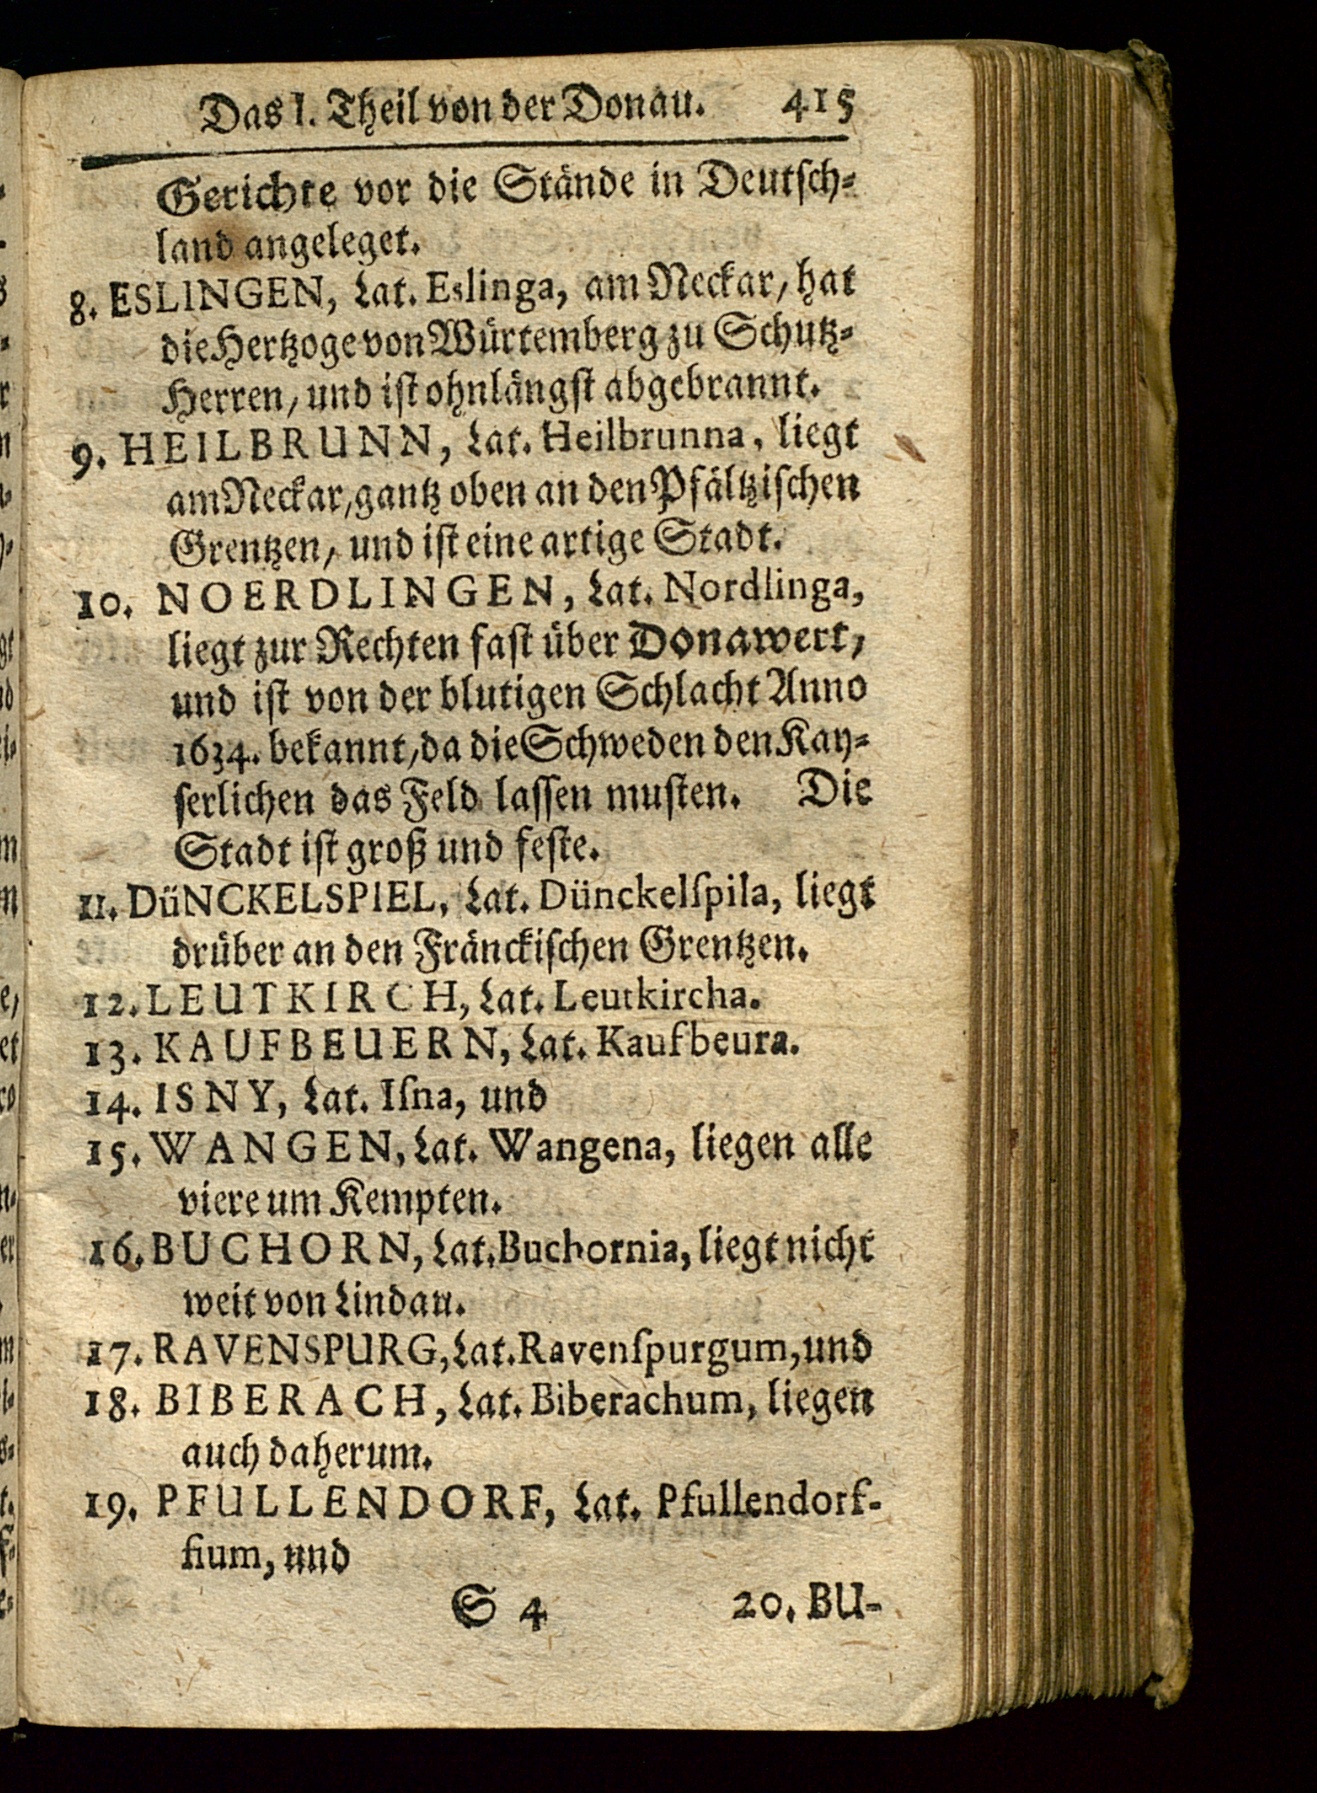 Das I. Theil von der Donau. 415
Gerichte vor die Stände in Deutsch-
land angeleget.
8. ESLINGEN, Lat. Eslinga, am Neckar, hat
die Hertzoge von Würtemberg zu Schutz-
Herren, und ist ohnlängst abgebrannt.
9. HEILBRUNN, Lat. Heilbrunna, liegt
am Neckar, gantz oben an den Pfältzischen
Grentzen, und ist eine artige Stadt.
10. NOERDLINGEN, Lat. Nordlinga,
liegt zur Rechten fast über Donawert,
und ist von der blutigen Schlacht Anno
1634. bekannt, da die Schweden den Kay-
serlichen das Feld lassen musten. Die
Stadt ist groß und feste.
11. DüNCKELSPIEL, Lat. Dünckelſpila, liegt
drüber an den Fränckischen Grentzen.
12. LEUTKIRCH, Lat. Leutkircha.
13. KAUFBEUERN, Lat. Kaufbeura.
14. ISNY, Lat. Iſna, und
15. WANGEN, Lat. Wangena, liegen alle
viere um Kempten.
16. BUCHORN, Lat. Buchornia, liegt nicht
weit von Lindau.
17. RAVENSPURG, Lat. Ravenſpurgum, und
18. BIBERACH, Lat. Biberachum, liegen
auch daherum.
19. PFULLENDORF, Lat. Pfullendorf-
fium, und
S 4 20. BU-